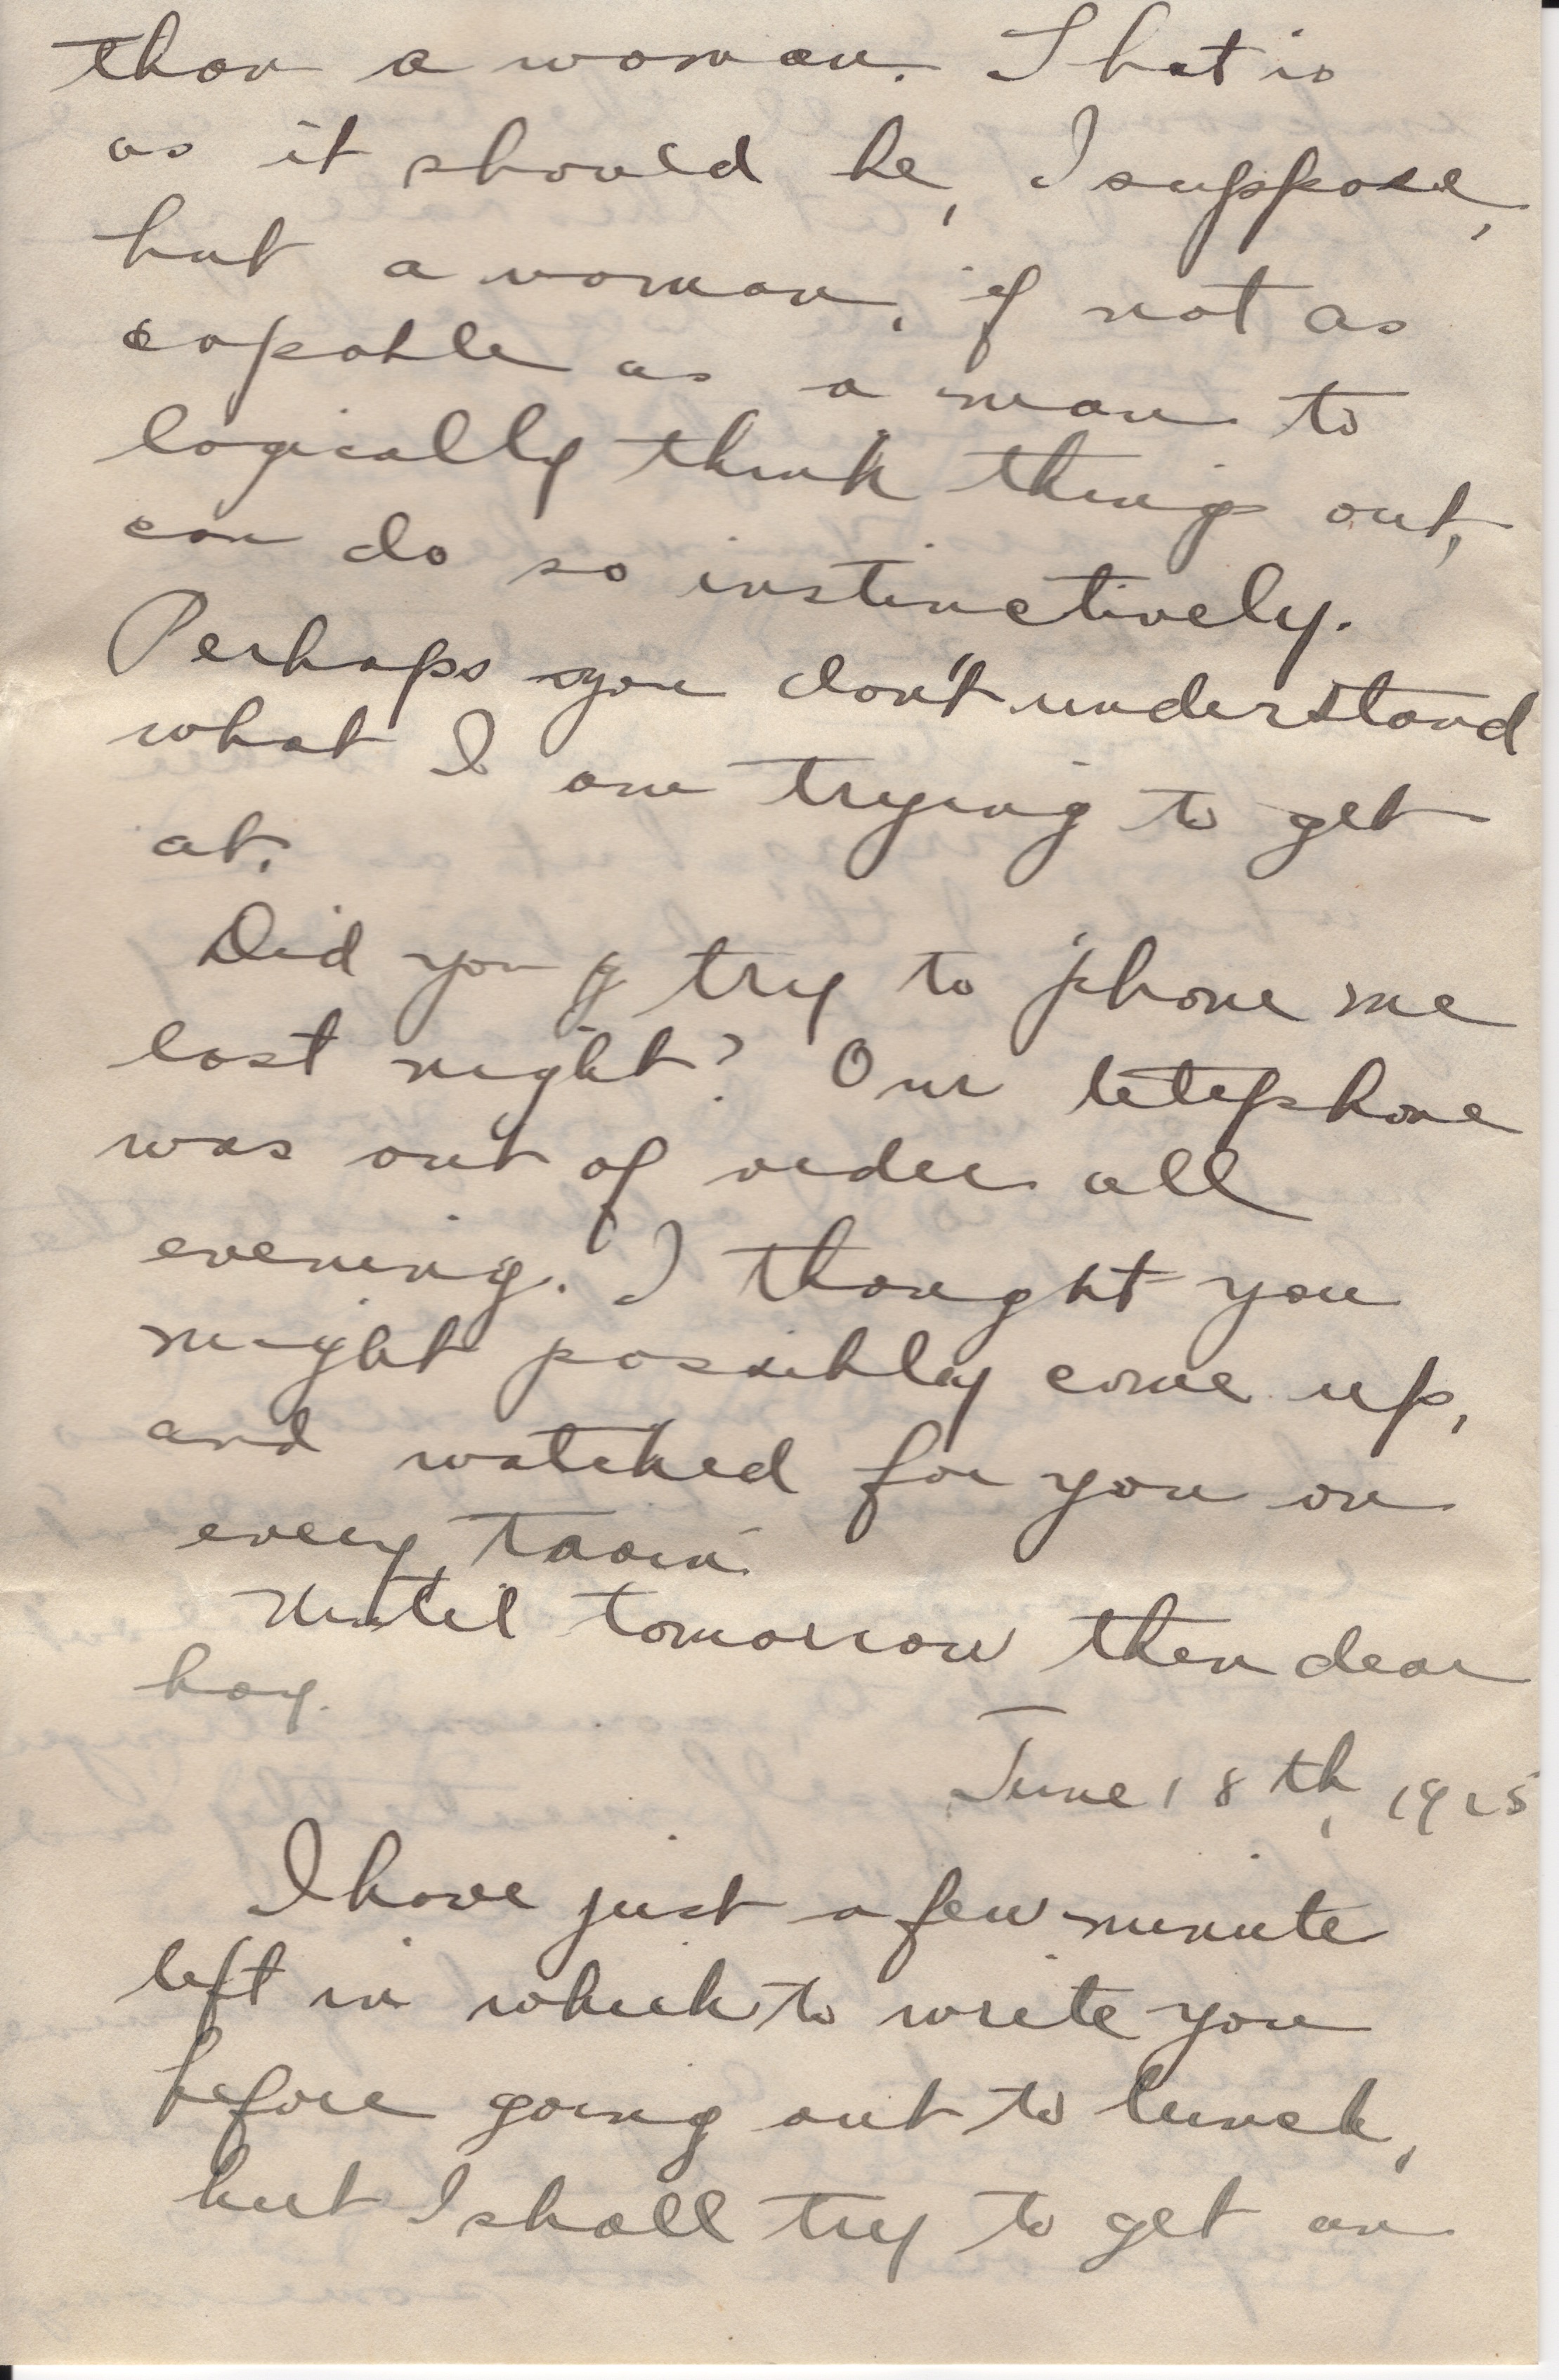 than a woman. That is
as it should be, I suppose,
but a woman, if not as
capable as a man to
logically think things out,
can do so instinctively.
Perhaps you don't understand
what I am trying to get
at.
Did you try to 'phone me
last night? Our telephone
was out of order all
evening. I thought you
might possibly come up,
and watched for you on
every train.
Until tomorrow then dear
boy.
June 18th, 1925
I have just a few minute
left in which to write you
before going out to lunch,
but I shall try to get an